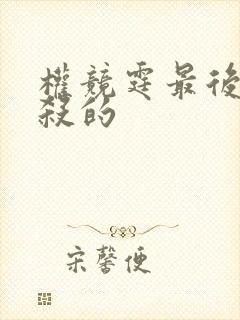 權競霆最後
殺的
宋馨便